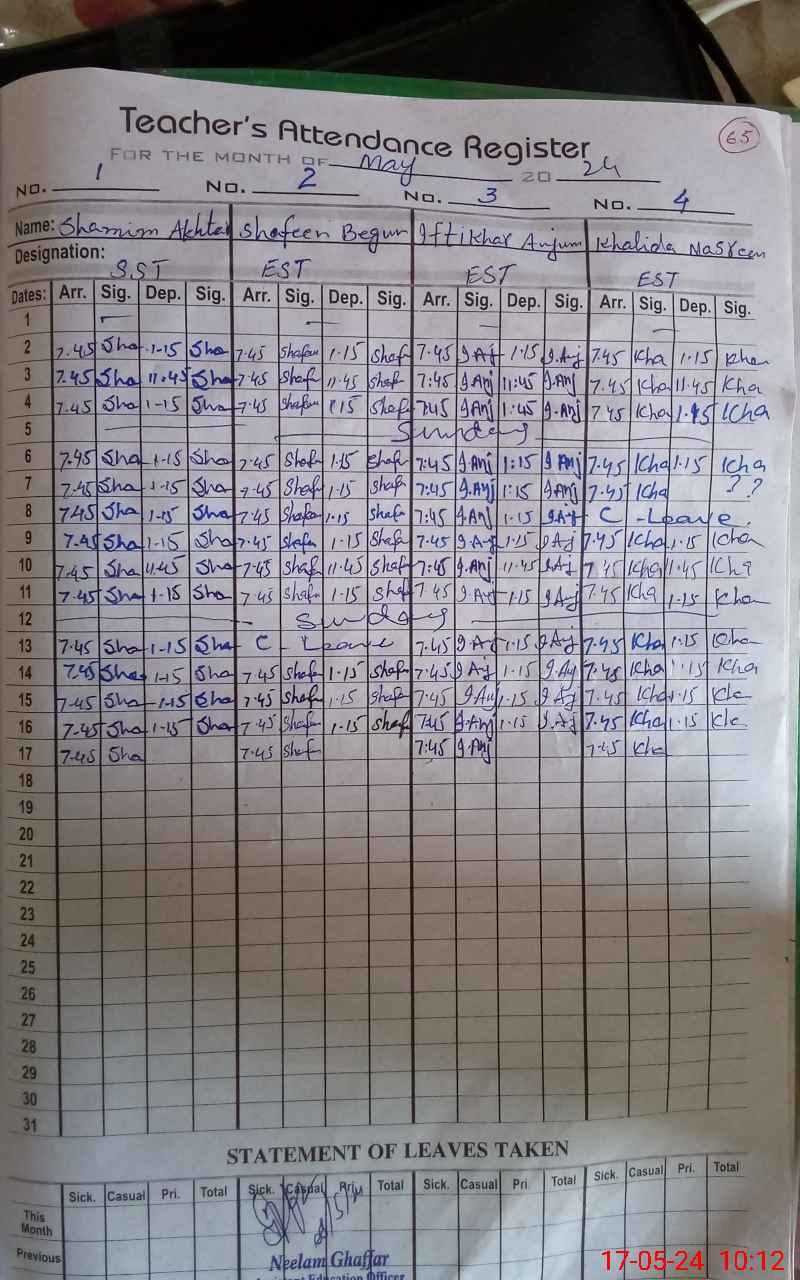 Teacher's Attendance Register
65
FOR THE MONTH OF May 20 24
No. 1 No. 2 No. 3 No. 4
Name: Shamim Akhtar Shafeen Begum Iftikhar Anjum Khalida Nasreen
Designation: SST EST EST EST
Dates: Arr. Sig. Dep. Sig. Arr. Sig. Dep. Sig. Arr. Sig. Dep. Sig. Arr. Sig. Dep. Sig.
1 — — — —
2 7.45 Sha 1-15 Sha 7.45 Shafeen 1.15 Shaf 7.45 I.Anj 1.15 I.Anj 7.45 Kha 1.15 Kha
3 7.45 Sha 11.45 Sha 7.45 Shaf 11.45 Shaf 7:45 I.Anj 11:45 I.Anj 7.45 Kha 11.45 Kha
4 7.45 Sha 1-15 Sha 7.45 Shafeen 1.15 Shaf 7.45 I.Anj 1:45 I.Anj 7.45 Kha Kha
5 Sunday
6 7.45 Sha 1-15 Sha 7.45 Shaf 1.15 Shaf 7:45 I.Anj 1:15 I.Anj 7.45 Kha 1.15 Kha
7 7.45 Sha 1-15 Sha 7.45 Shaf 1.15 Shaf 7:45 I.Anj 1:15 I.Anj 7.45 Kha ? ?
8 7.45 Sha 1-15 Sha 7.45 Shaf 1.15 Shaf 7:45 I.Anj 1.15 I.Aj C - Leave.
9 7.45 Sha 1-15 Sha 7.45 Shaf 1.15 Shaf 7.45 I.Aj 1.15 I.Aj 7.45 Kha 1.15 Kha
10 7.45 Sha 11.45 Sha 7.45 Shaf 11.45 Shaf 7:45 I.Anj 11.45 I.Aj 7.45 Kha 11.45 Kha
11 7.45 Sha 1-15 Sha 7.45 Shaf 1.15 Shaf 7.45 I.Aj 1.15 I.Aj 7.45 Kha 1.15 Kha
12 Sunday
13 7.45 Sha 1-15 Sha C - Leave 7.45 I.Aj 1.15 I.Aj 7.45 Kha 1.15 Kha
14 7.45 Sha 1-15 Sha 7.45 Shaf 1.15 Shaf 7.45 I.Aj 1.15 I.Aj 7.45 Kha 1.15 Kha
15 7.45 Sha 1-15 Sha 7.45 Shaf 1.15 Shaf 7.45 I.Aj 1.15 I.Aj 7.45 Kha 1.15 Kla
16 7.45 Sha 1-15 Sha 7.45 Shaf 1.15 Shaf 7.45 I.Anj 1.15 I.Aj 7.45 Kha 1.15 Kla
17 7.45 Sha 7.45 Shaf 7:45 I.Anj 7.45 Kha
18
19
20
21
22
23
24
25
26
27
28
29
30
31
STATEMENT OF LEAVES TAKEN
Sick. Casual Pri. Total Sick. Casual Pri. Total Sick. Casual Pri. Total Sick. Casual Pri. Total
This
Month
Previous
Neelam Ghaffar
Assistant Education Officer
17-05-24 10:12